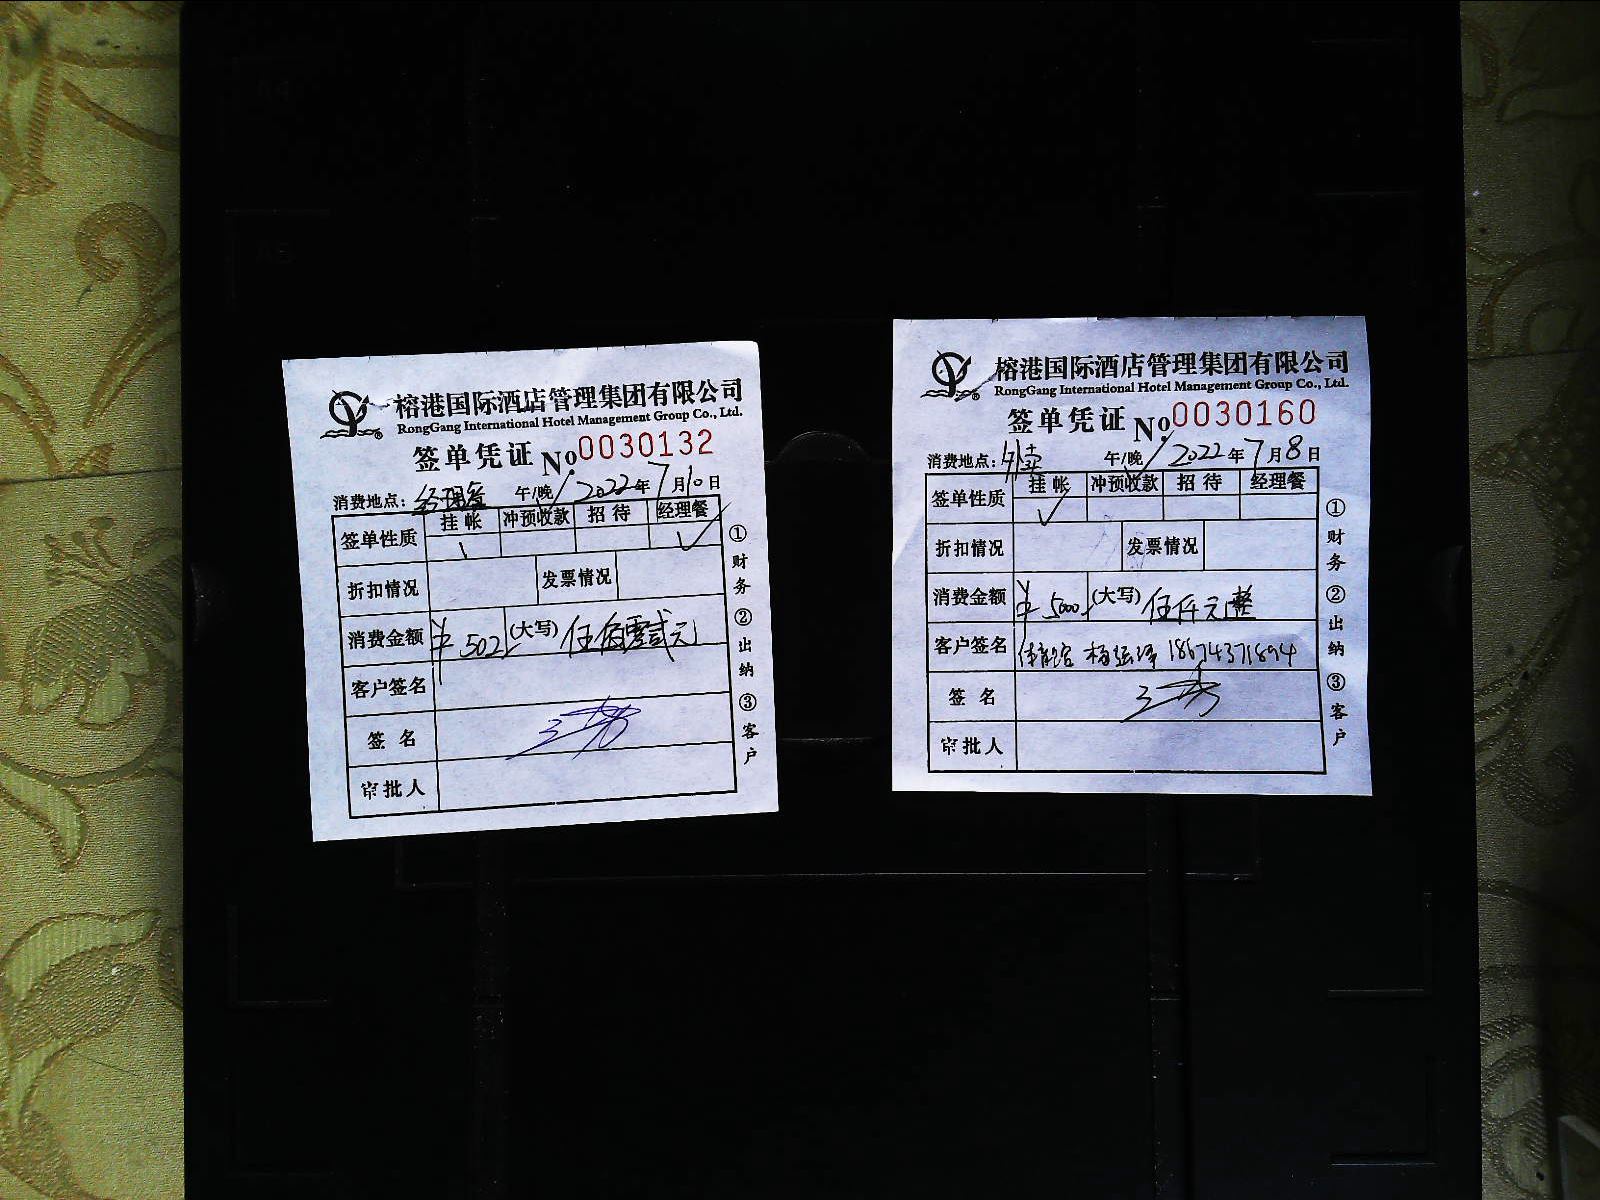 榕港国际酒店管理集团有限公司
RongGang International Hotel Management Group Co., Ltd.
签单凭证 No.0030132
消费地点：经理餐 午/晚 2022年7月10日
签单性质 挂帐 冲预收款 招待 经理餐
折扣情况 发票情况
消费金额 ¥502 (大写) 伍佰零贰元
客户签名
签名
审批人
①财务 ②出纳 ③客户
榕港国际酒店管理集团有限公司
RongGang International Hotel Management Group Co., Ltd.
签单凭证 No.0030160
消费地点： 午/晚 2022年7月8日
签单性质 挂帐 冲预收款 招待 经理餐
折扣情况 发票情况
消费金额 ¥5000 (大写) 伍仟元整
客户签名 体育馆 18674371894
签名
审批人
①财务 ②出纳 ③客户